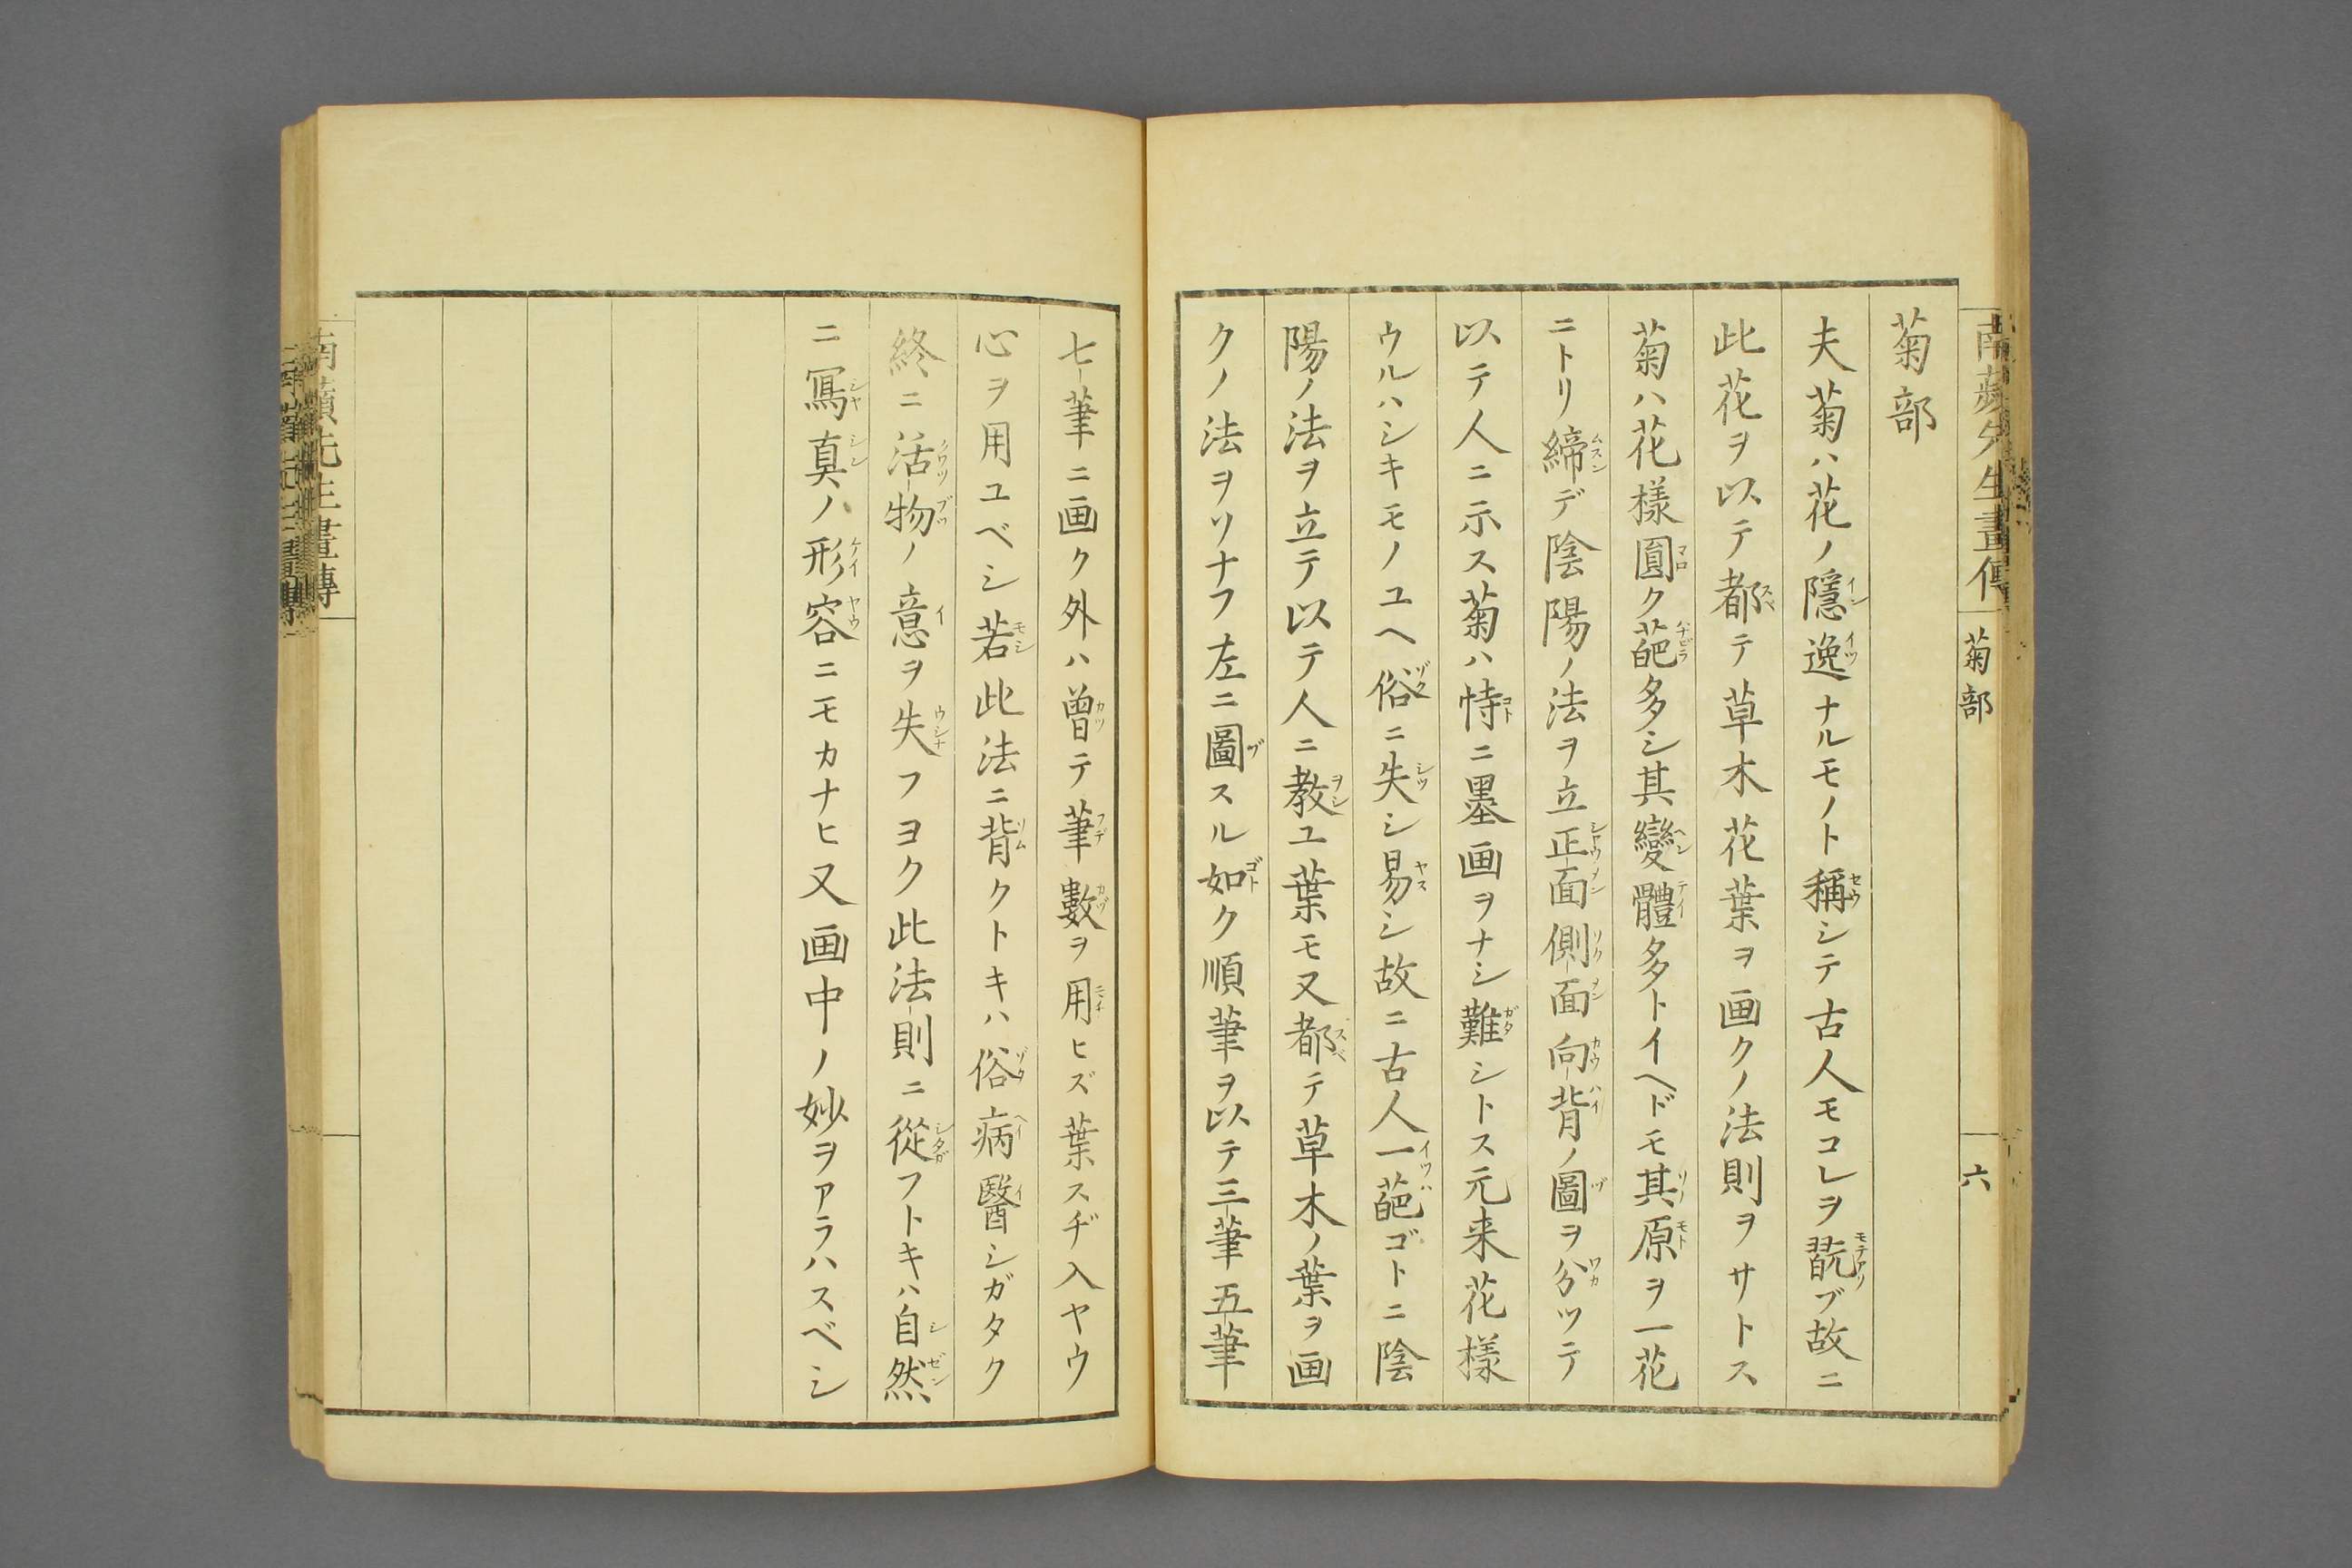 南蘋先生畫傳
菊部
六
菊部
夫菊ハ花ノ隱逸ナルモノト稱シテ古人モコレヲ翫ブ故ニ
此花ヲ以テ都テ草木花葉ヲ画クノ法則ヲサトス
菊ハ花樣圓ク葩多シ其變體多トイヘドモ其原ヲ一花
ニトリ締デ陰陽ノ法ヲ立正面側面向背ノ圖ヲ分ツテ
以テ人ニ示ス菊ハ恃ニ墨画ヲナシ難シトス元来花樣
ウルハシキモノユヘ俗ニ失シ易シ故ニ古人一葩ゴトニ陰
陽ノ法ヲ立テ以テ人ニ教ユ葉モ又都テ草木ノ葉ヲ画
クノ法ヲソナフ左ニ圖スル如ク順筆ヲ以テ三筆五筆
七筆ニ画ク外ハ曽テ筆數ヲ用ヒズ葉スヂ入ヤウ
心ヲ用ユベシ若此法ニ背クトキハ俗病醫シガタク
終ニ活物ノ意ヲ失フヨク此法則ニ從フトキハ自然
ニ寫真ノ形容ニモカナヒ又画中ノ妙ヲアラハスベシ
南蘋先生畫傳